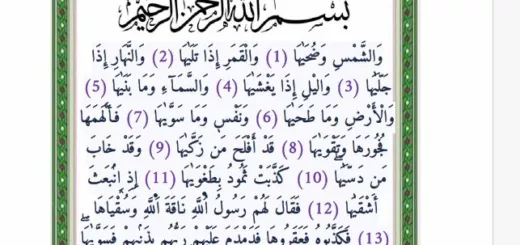 بِسْمِ اللَّهِ الرَّحْمَٰنِ الرَّحِيمِ
وَالشَّمْسِ وَضُحَىٰهَا (1) وَالْقَمَرِ إِذَا تَلَىٰهَا (2) وَالنَّهَارِ إِذَا
جَلَّىٰهَا (3) وَالَّيْلِ إِذَا يَغْشَىٰهَا (4) وَالسَّمَآءِ وَمَا بَنَىٰهَا (5)
وَالْأَرْضِ وَمَا طَحَىٰهَا (6) وَنَفْسٍ وَمَا سَوَّىٰهَا (7) فَأَلْهَمَهَا
فُجُورَهَا وَتَقْوَىٰهَا (8) قَدْ أَفْلَحَ مَن زَكَّىٰهَا (9) وَقَدْ خَابَ
مَن دَسَّىٰهَا (10) كَذَّبَتْ ثَمُودُ بِطَغْوَىٰهَا (11) إِذِ انۢبَعَثَ
أَشْقَىٰهَا (12) فَقَالَ لَهُمْ رَسُولُ اللَّهِ نَاقَةَ اللَّهِ وَسُقْيَاهَا
(13) فَكَذَّبُوهُ فَعَقَرُوهَا فَدَمْدَمَ عَلَيْهِمْ رَبُّهُم بِذَنۢبِهِمْ فَسَوَّىٰهَا